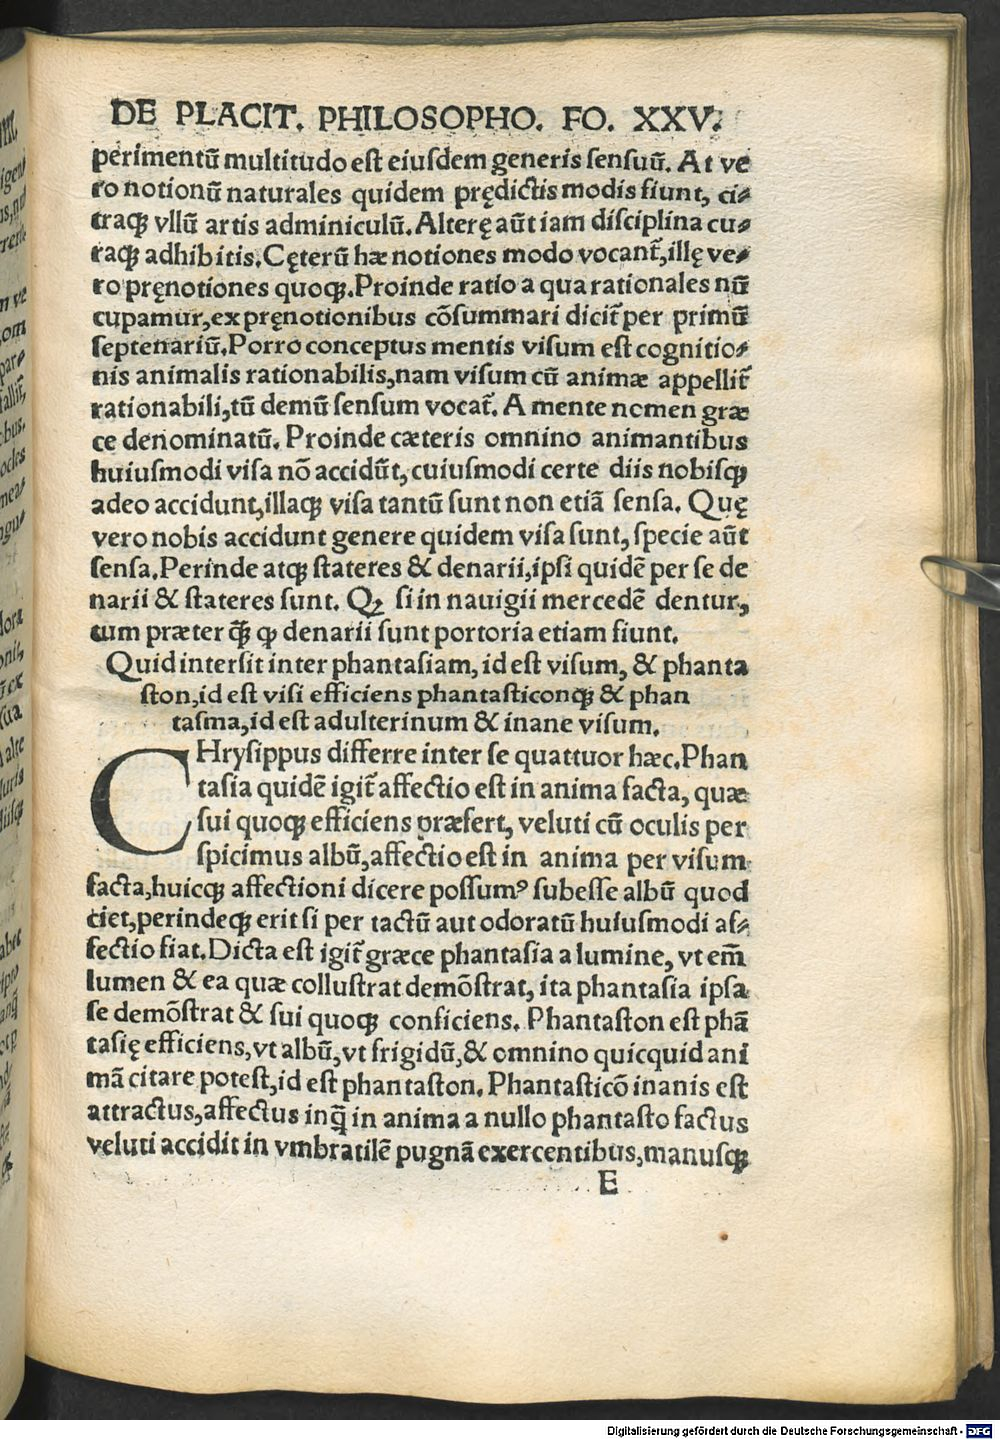 DE PLACIT. PHILOSOPHO. FO. XXV.
perimentū multitudo est eiusdem generis sensuū. At ve
ro notionū naturales quidem prędictis modis fiunt, ci⸗
traqꝫ vllū artis adminiculū. Alterę aūt iam disciplina cu⸗
raqꝫ adhibitis. Cęterū hæ notiones modo vocant̃, illę ve⸗
ro pręnotiones quoqꝫ. Proinde ratio a qua rationales nū
cupamur, ex pręnotionibus cōsummari dicit̃ per primū
septenariū. Porro conceptus mentis visum est cognitio⸗
nis animalis rationabilis, nam visum cū animæ appellit̃
rationabili, tū demū sensum vocat̃. A mente nomen græ
ce denominatū. Proinde cæteris omnino animantibus
huiusmodi visa nō accidūt, cuiusmodi certe diis nobisqꝫ
adeo accidunt, illaqꝫ visa tantū sunt non etiā sensa. Quę
vero nobis accidunt genere quidem visa sunt, specie aūt
sensa. Perinde atqꝫ stateres & denarii, ipsi quidē per se de
narii & stateres sunt. Qꝫ si in nauigii mercedē dentur,
tum præter q̃ꝫ qꝫ denarii sunt portoria etiam fiunt.
Quid intersit inter phantasiam, id est visum, & phanta
ston, id est visi efficiens phantasticonqꝫ & phan
tasma, id est adulterinum & inane visum.
CHrysippus differre inter se quattuor hæc. Phan
tasia quidē igit̃ affectio est in anima facta, quæ
sui quoqꝫ efficiens præfert, veluti cū oculis per
spicimus albū, affectio est in anima per visum
facta, huicqꝫ affectioni dicere possumꝰ subesse albū quod
ciet, perindeqꝫ erit si per tactū aut odoratū huiusmodi af⸗
fectio fiat. Dicta est igit̃ græce phantasia a lumine, vt em̄
lumen & ea quæ collustrat demōstrat, ita phantasia ipsa
se demōstrat & sui quoqꝫ conficiens. Phantaston est phā
tasię efficiens, vt albū, vt frigidū, & omnino quicquid ani
mā citare potest, id est phantaston. Phantasticō inanis est
attractus, affectus inq̄ in anima a nullo phantasto factus
veluti accidit in vmbratilē pugnā exercentibus, manusqꝫ
E
Digitalisierung gefördert durch die Deutsche Forschungsgemeinschaft - DFG